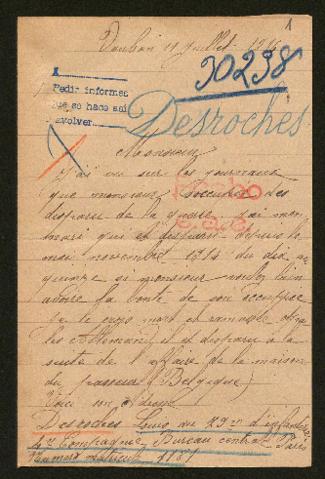 1
Vauban 11 juillet 1916
30238
Pedir informes
que se hace sai
volver
Desroches
Monsieur
J'ai vu sur les journeaux
que monsieur soccuper des
disparue de la guerre j'ai mon
mari qui et disparu depuis le
moi novembre 1914 du dix au
quinze si monsieur voulez bien
avoire la bonté de son occuppe
je le crois mort et ramassé chez
les Allemand il et disparu à la
suite de l'affaire de la maison
du passeur (Belgique)
Voici son adresse
Desroches Louis du 29em d'infanterie
4e Compagnie Bureau central Paris
Numero matricule